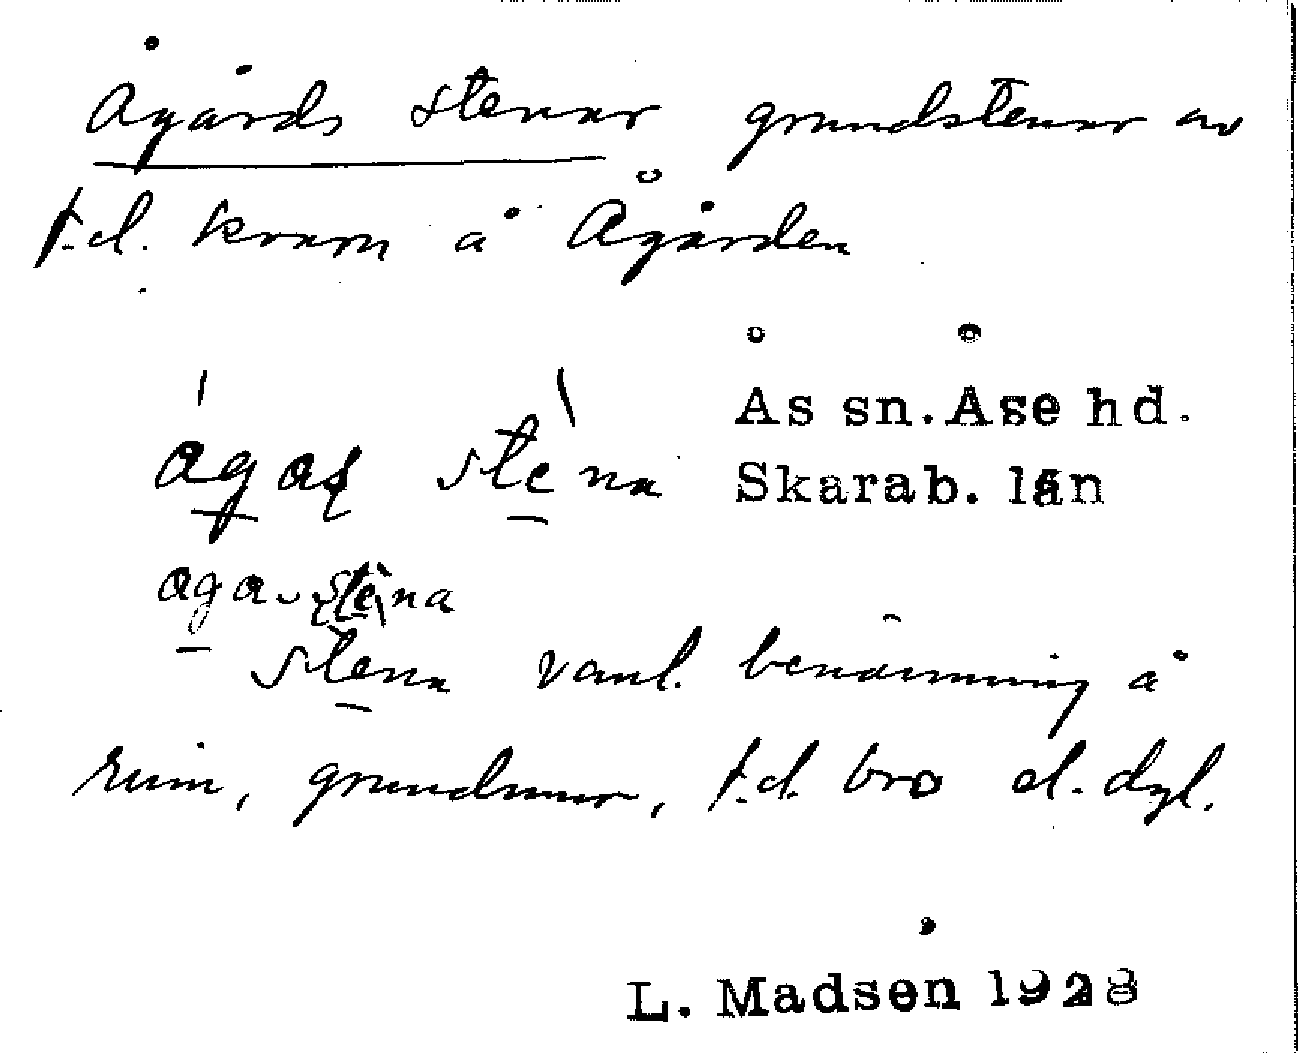 Ågårds stenar grundstenar av
f.d. kvarn å Ågården
Ås sn. Åse hd.
Skarab. län
stena vanl. benämning å
ruin, grundmur, f.d. bro el. dyl.
L. Madsen 1928